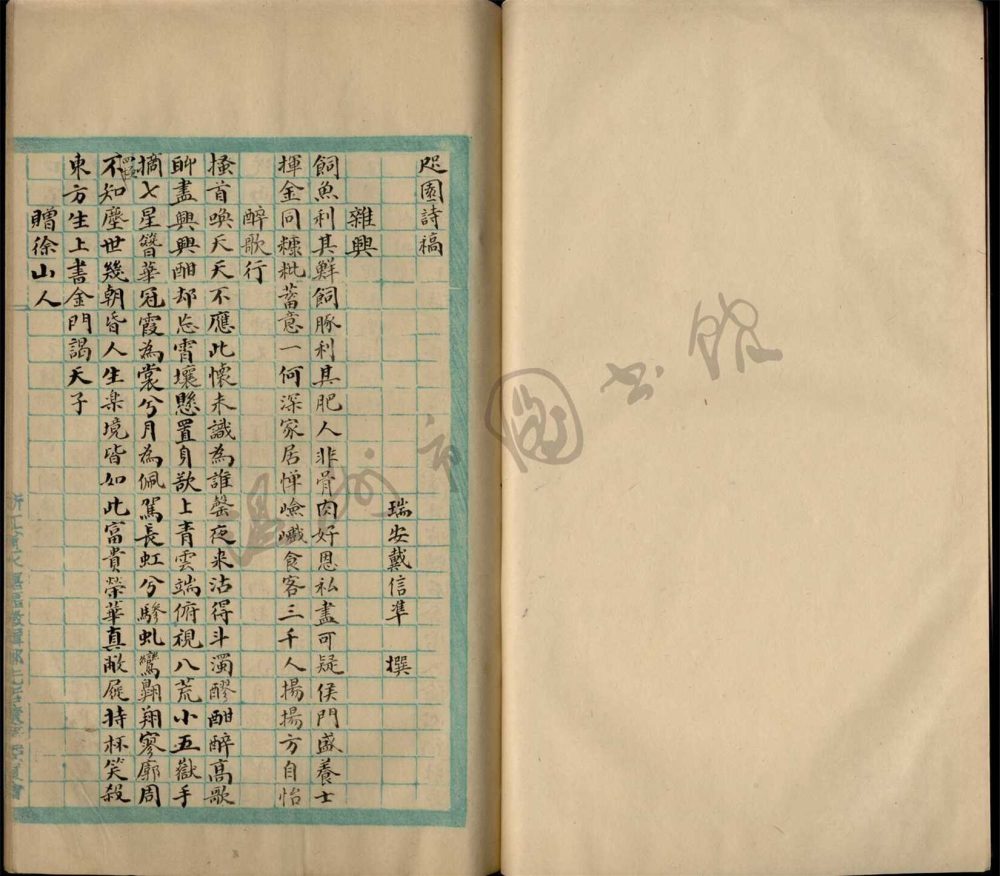 咫園詩稿
瑞安戴信準　撰
雜興
飼魚利其鮮飼豚利其肥人非骨肉好恩私盡可疑侯門盛養士
揮金同糠粃蓄意一何深家居憚嶮巇食客三千人揚揚方自怡
醉歌行
搔首喚天天不應此懷未識為誰罄夜來沽得斗濁醪酣醉高歌
聊盡興興酣却忘霄壤懸置身欲上青雲端俯視八荒小五嶽手
摘七星簪華冠霞為裳兮月為佩駕長虹兮驂虬鸞翱翔寥廓周
四極不知塵世幾朝昏人生樂境皆如此富貴榮華真敝屣持杯笑殺
東方生上書金門謁天子
贈徐山人
浙江省永嘉區徵輯鄉先哲遺著委員會
溫州市圖書館